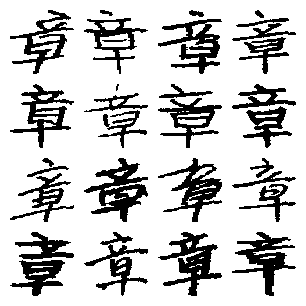 章章章章
章章章章
章章章章
章章章章